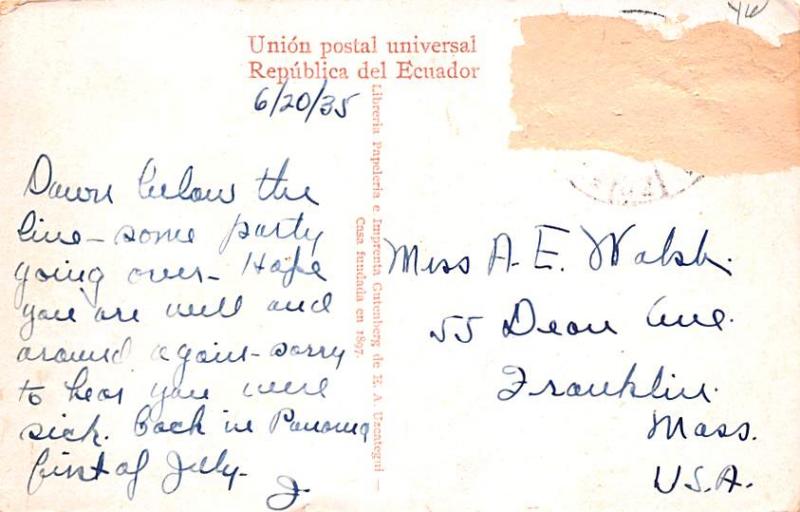 Unión postal universal
República del Ecuador
6/20/35
Down below the
line - some party
going over - Hope
you are well and
around again - sorry
to hear you were
sick. Back in Panama
first of July -
J.
Libreria Papeleria e Imprenta Gutenberg de E. A. Uzcategui —
Casa fundada en 1897.
Miss A. E. Walsh.
55 Dean Ave.
Franklin.
Mass.
U.S.A.